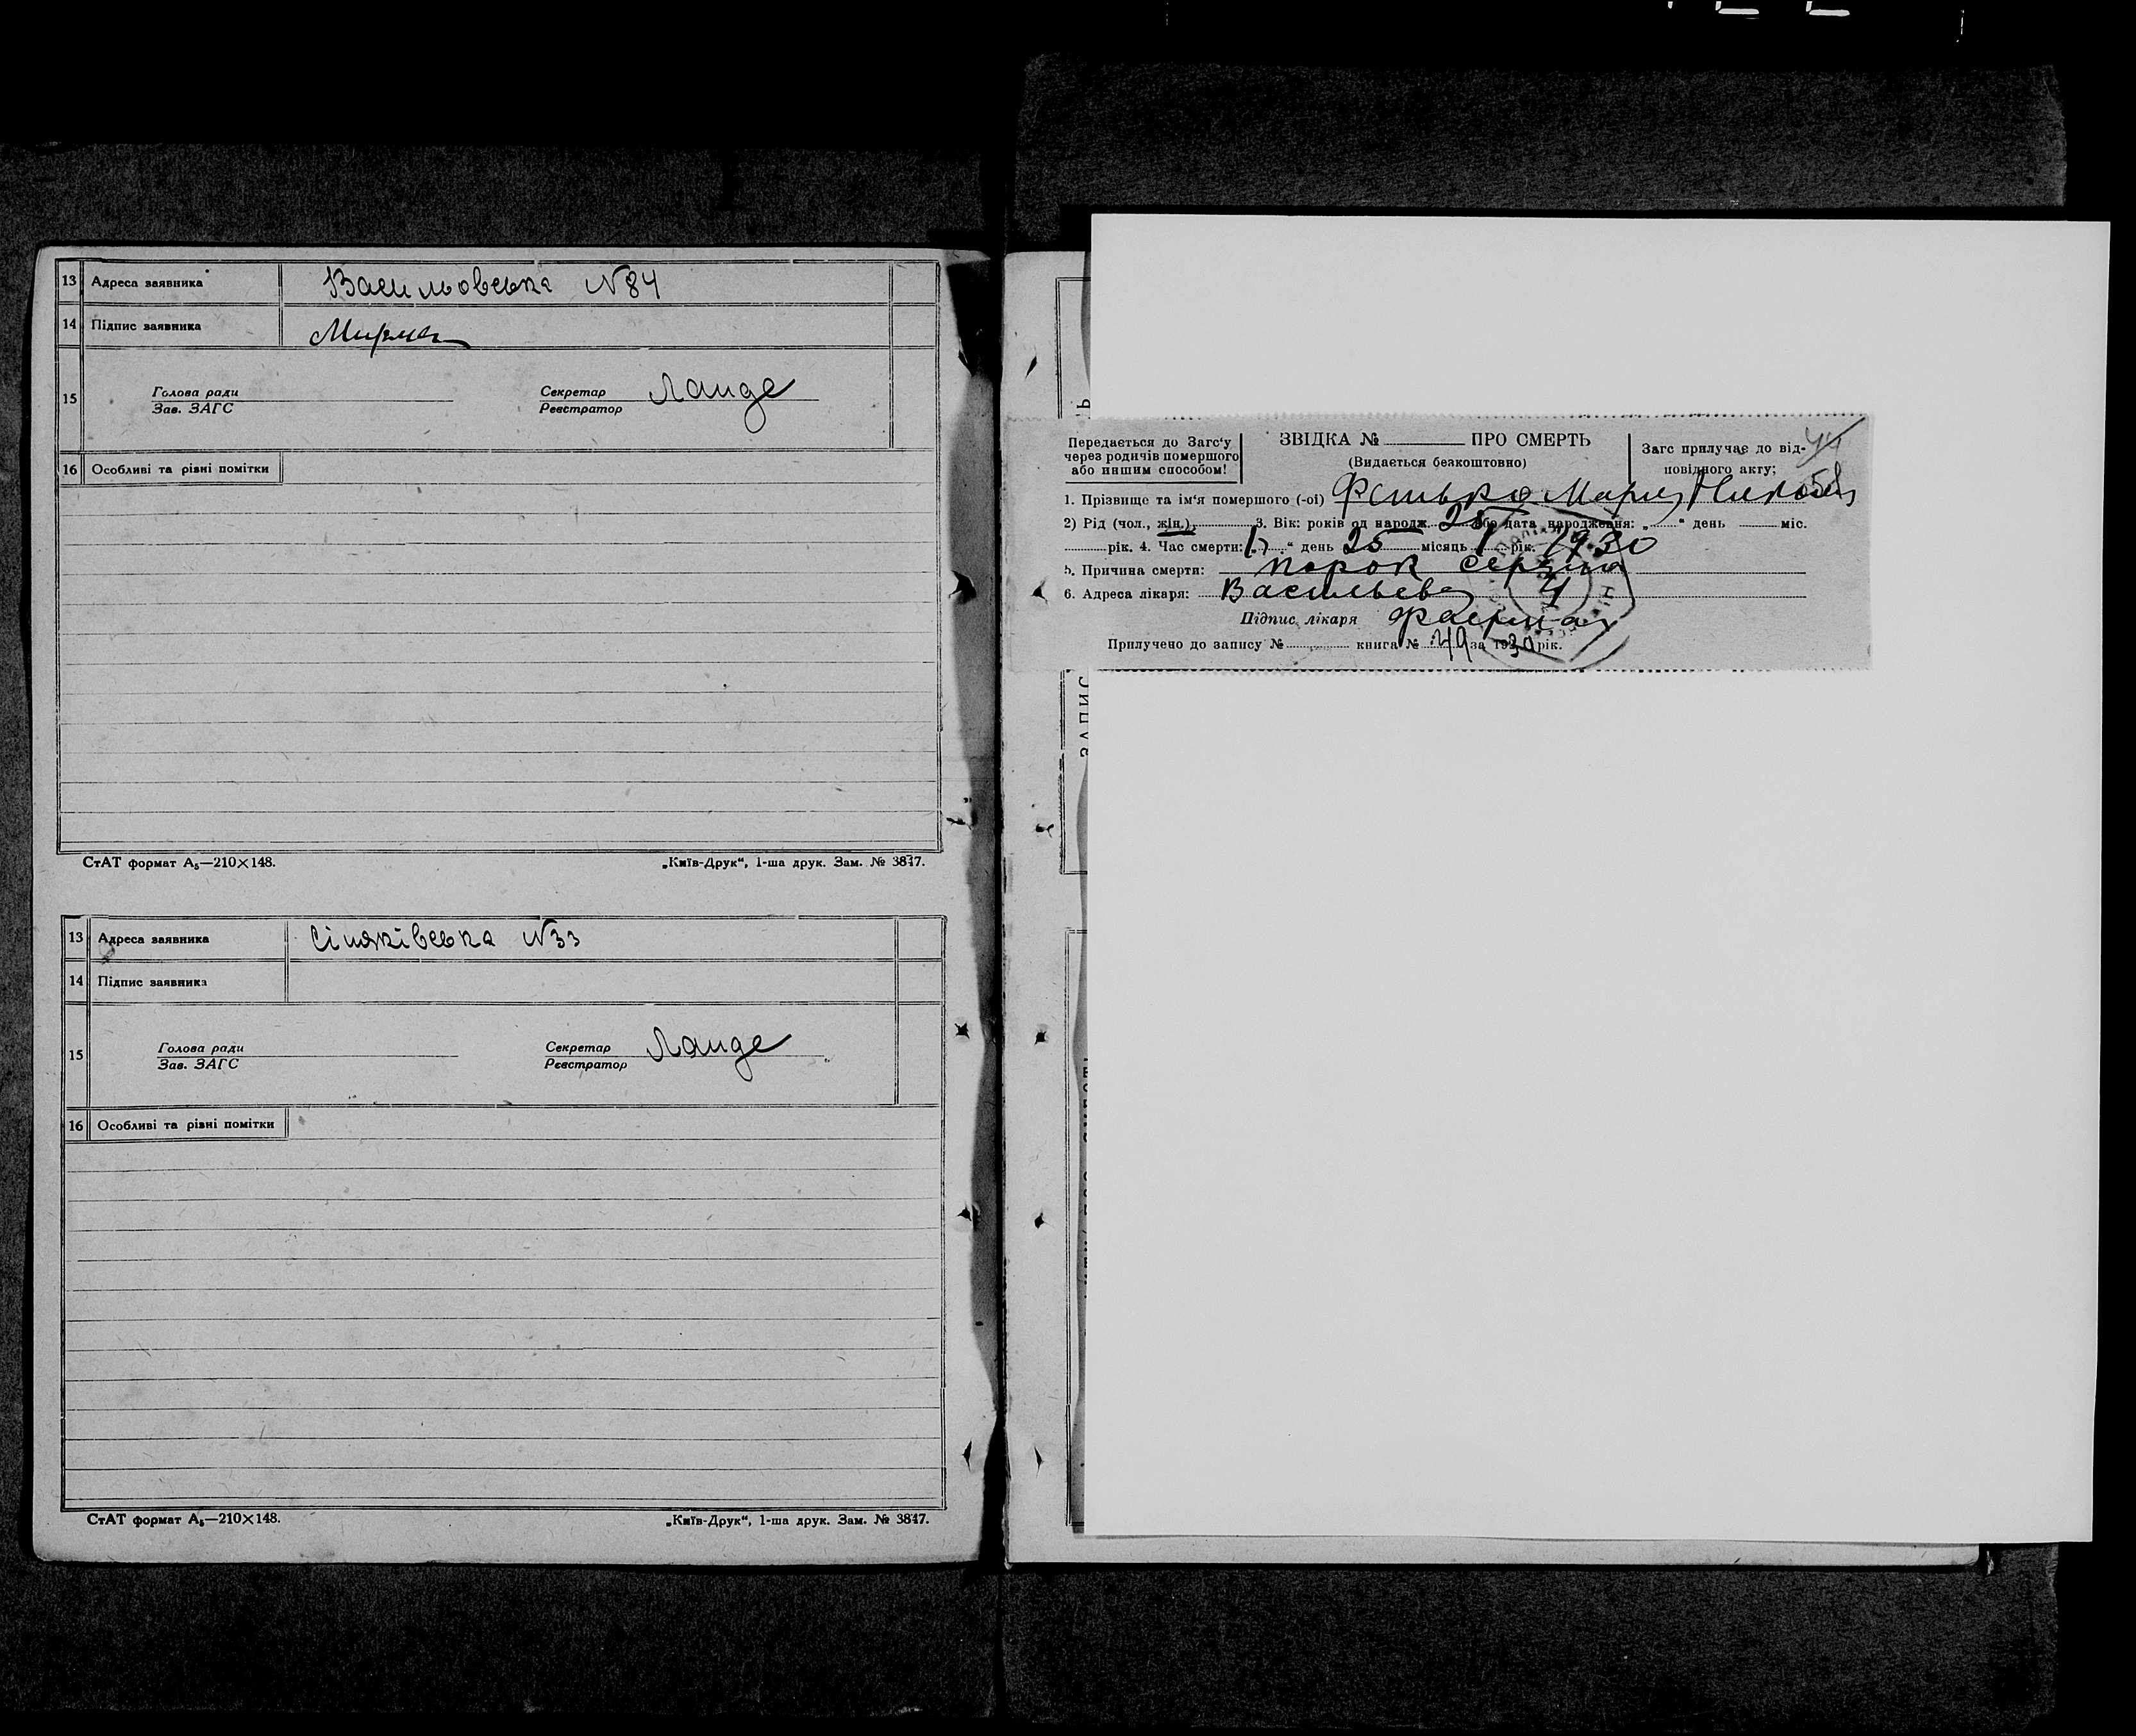 13 Адреса заявника Васильовська N84
14 Підпис заявника
15 Голова ради Секретар Ланде
Зав. ЗАГС Реєстратор
16 Особливі та різні помітки
СтАТ формат А₅—210×148. „Київ-Друк“, 1-ша друк. Зам. № 3847.
13 Адреса заявника N33
14 Підпис заявника
15 Голова ради Секретар Ланде
Зав. ЗАГС Реєстратор
16 Особливі та різні помітки
СтАТ формат А₅—210×148. „Київ-Друк“, 1-ша друк. Зам. № 3847.
Передається до Загс'у
через родичів помершого
або иншим способом!
ЗВІДКА № ПРО СМЕРТЬ
(Видається безкоштовно)
Загс прилучає до від-
повідного акту;
44
58
1. Прізвище та ім'я помершого (-ої) Мария
2) Рід (чол., жін.) 3. Вік: років од народж. 25 або дата народження: „ “ день міс.
рік. 4. Час смерти: „ “ день 25 місяць 1 рік. 1930
5. Причина смерти: порок сердца
6. Адреса лікаря: 4
Підпис лікаря
Прилучено до запису № книга № 49 за 1930 рік.
ЗАПИС